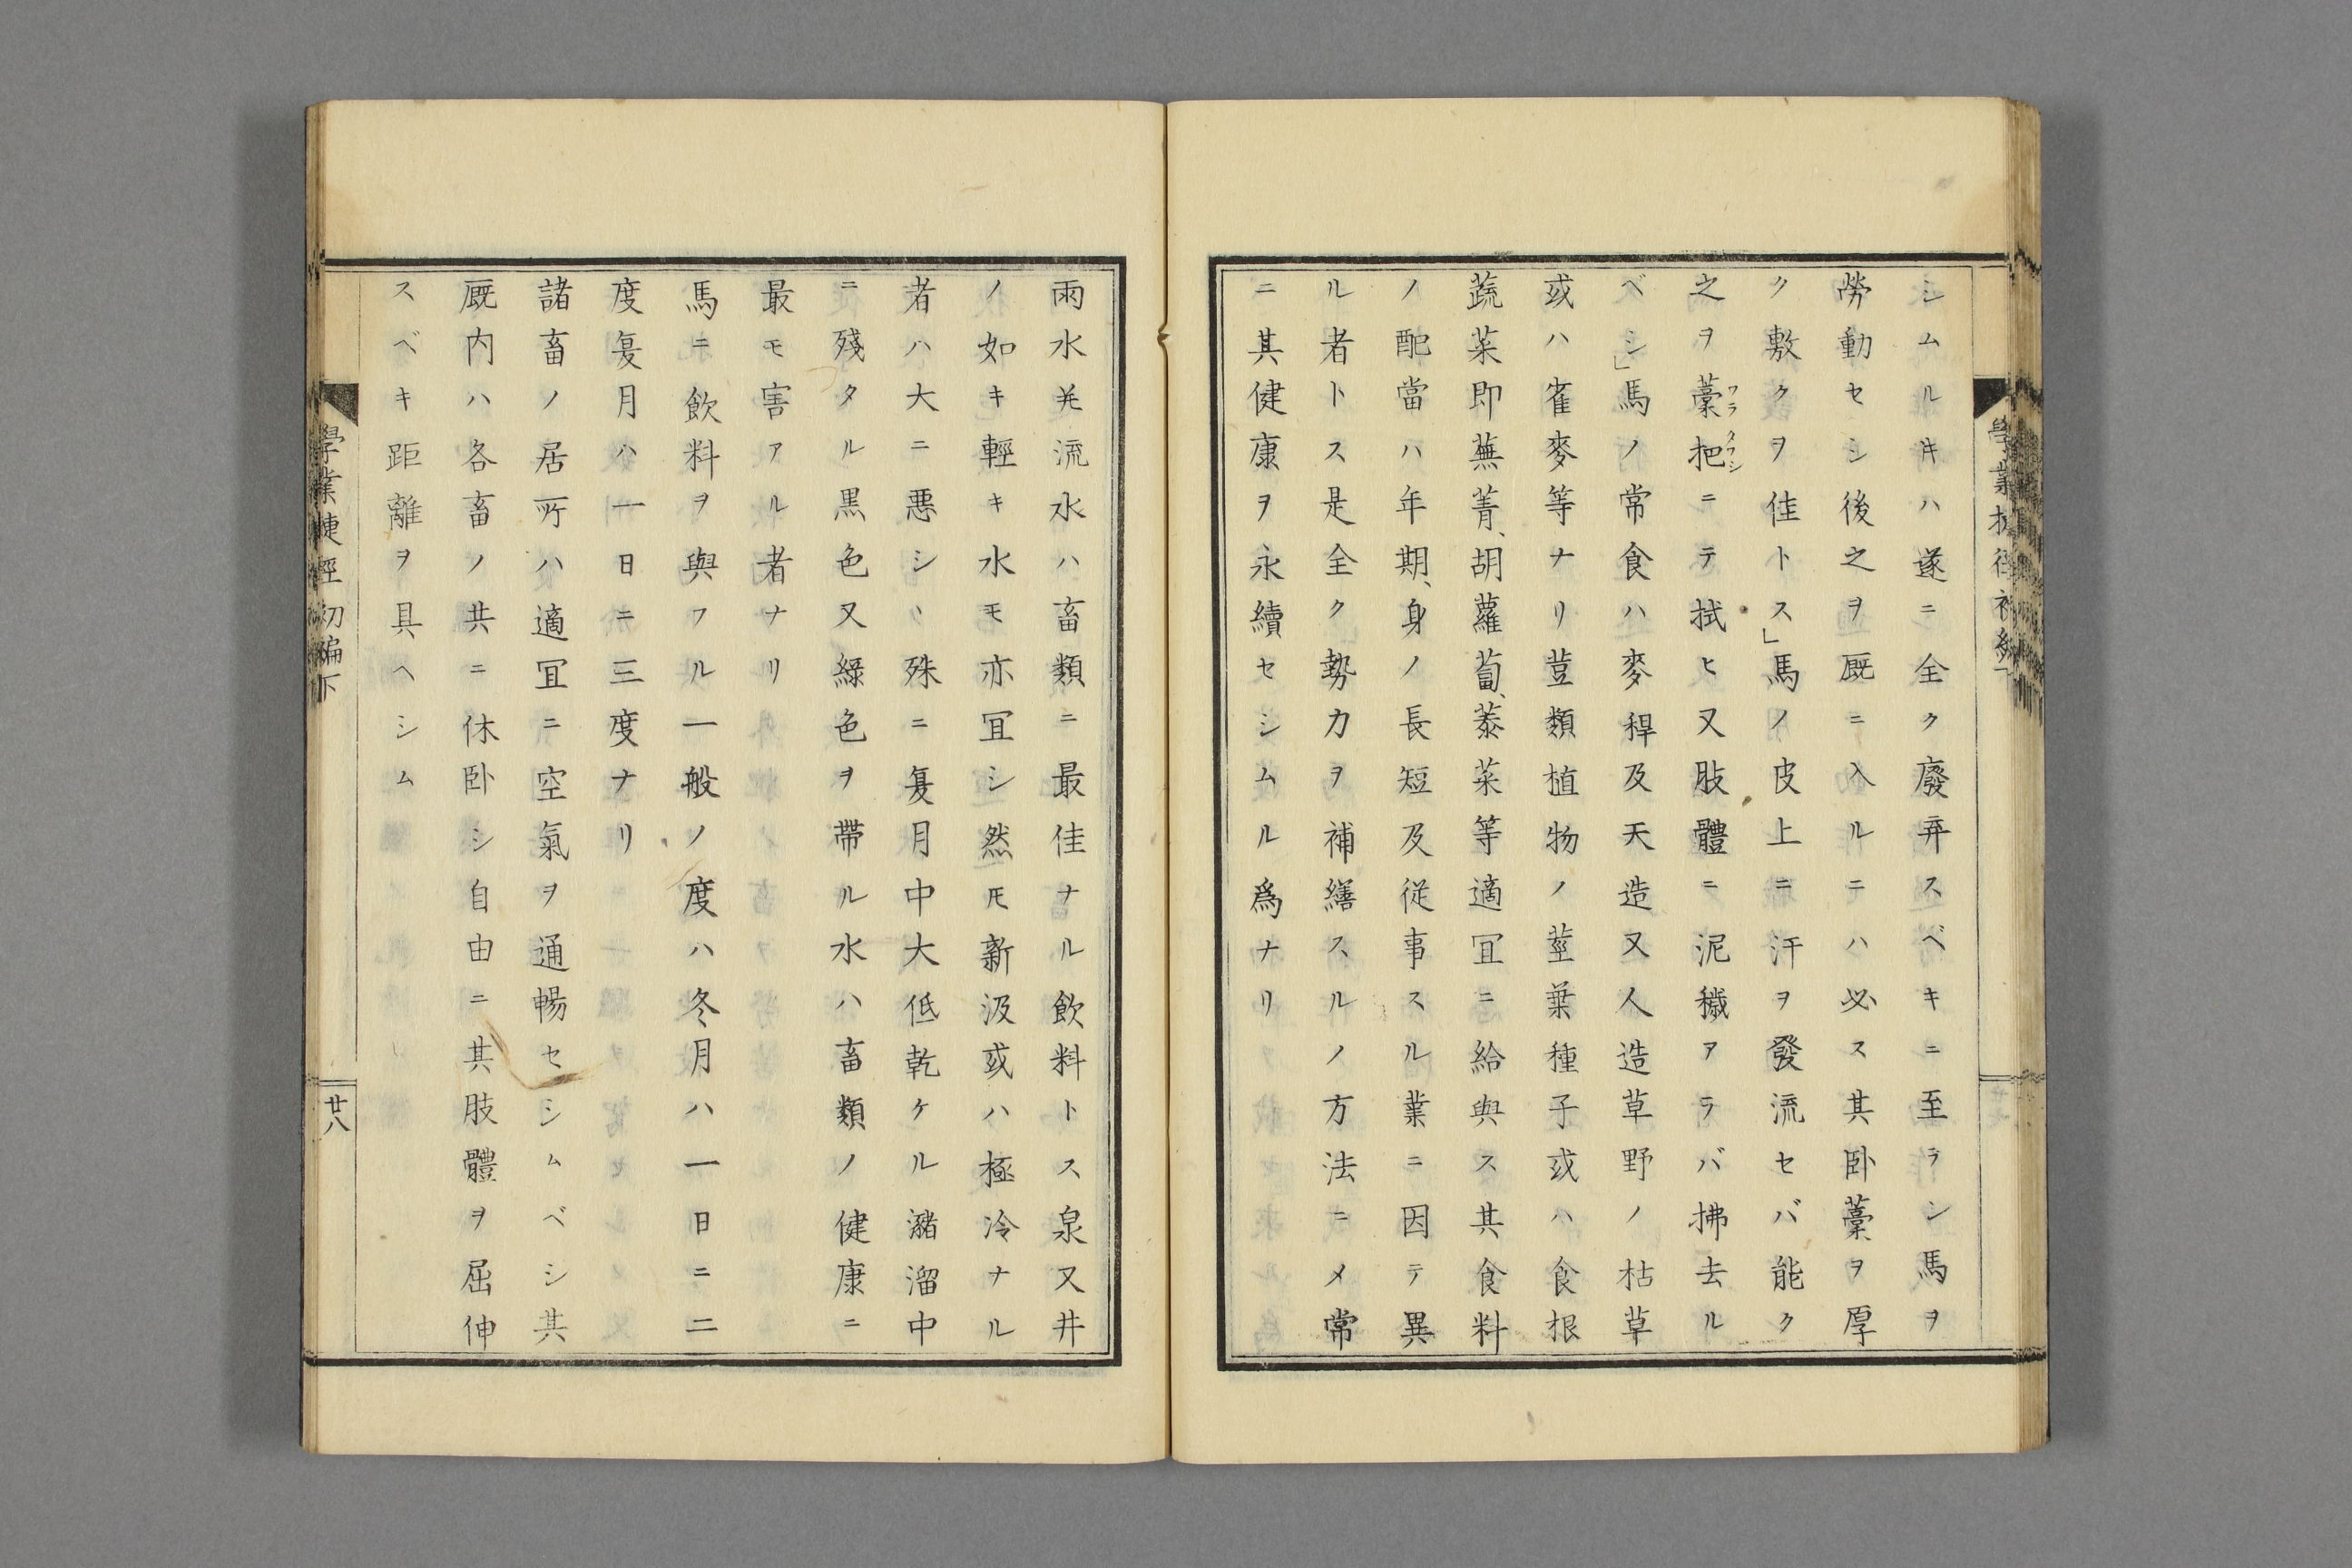 シムルキハ遂ニ全ク廢弃スベキニ至ラシ馬ヲ
勞動セシ後之ヲ厩ニ入ルニハ必ス其卧藁ヲ厚
ク敷クヲ佳トス」馬ノ皮上ニ汗ヲ發流セバ能ク
之ヲ藁把ニテ拭ヒ又肢體ニ泥穢アラバ拂去ル
ワラタワシ
ベシ」馬ノ常食ハ麥稈及天造又人造草野ノ枯草
或ハ雀麥等ナリ荳類植物ノ莖葉種子或ハ食根
蔬菜即蕪菁、胡蘿蔔、菾菜等適冝ニ給與ス其食料
ノ配當ハ年期、身ノ長短及従事スル業ニ因テ異
ル者トス是全ク勢力ヲ補繕スルノ方法ニメ常
ニ其健康ヲ永續セシムル爲ナリ
雨水羙流水ハ畜類ニ最佳ナル飲料トス泉又井
ノ如キ輕キ水モ亦冝シ然𪜈新汲或ハ極冷ナル
者ハ大ニ悪シヽ殊ニ夏月中大低乾ケル瀦溜中
ニ殘タル黒色又緑色ヲ帶ル水ハ畜類ノ健康ニ
最モ害アル者ナリ
馬ニ飲料ヲ與フル一般ノ度ハ冬月ハ一日ニ二
度夏月ハ一日ニ三度ナリ
諸畜ノ居所ハ適冝ニ空氣ヲ通暢セシムベシ其
厩内ハ各畜ノ共ニ休卧シ自由ニ其肢體ヲ屈伸
スベキ距離ヲ具ヘシム
學業捷徑初編下
廿八